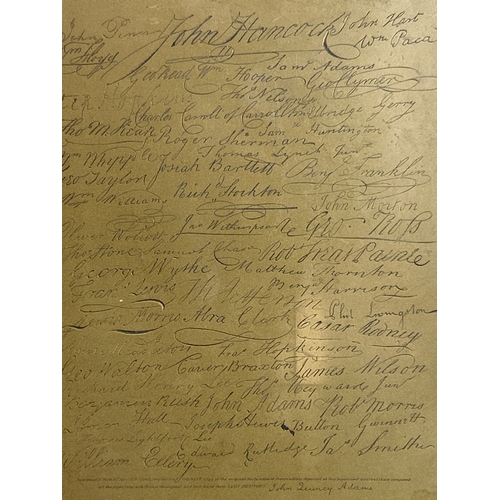 John Penn John Hancock John Hart
Wm Floyd Wm Paca
Saml Adams
Wm Hooper Geo Clymer
Thos Nelson jr
Charles Carroll of Carrollton Elbridge Gerry
Tho M:Kean Roger Sherman Saml Huntington
Wm Whipple Thomas Lynch Junr
Geo Taylon Josiah Bartlett Benj Franklin
Wm Williams Richd Stockton John Morton
Oliver Wolcott Jno Witherspoon Geo. Ross
Thos Stone Samuel Chase Robt Treat Paine
George Wythe Matthew Thornton
Frans Lewis Th Jefferson Benj Harrison
Lewis Morris Abra Clark Cæsar Rodney Phil Livingston
Hopkinson
Geo Walton Carter Braxton James Wilson
Richard Henry Lee Thos Heyward Junr
Benjamin Rush John Adams Robt Morris
Lyman Hall Joseph Hewes Button Gwinnett
Francis Lightfoot Lee
William Ellery Edward Rutledge Jas Smith
John Quincy Adams